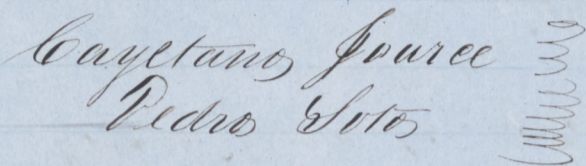 Cayetano Jouree
Pedro Soto